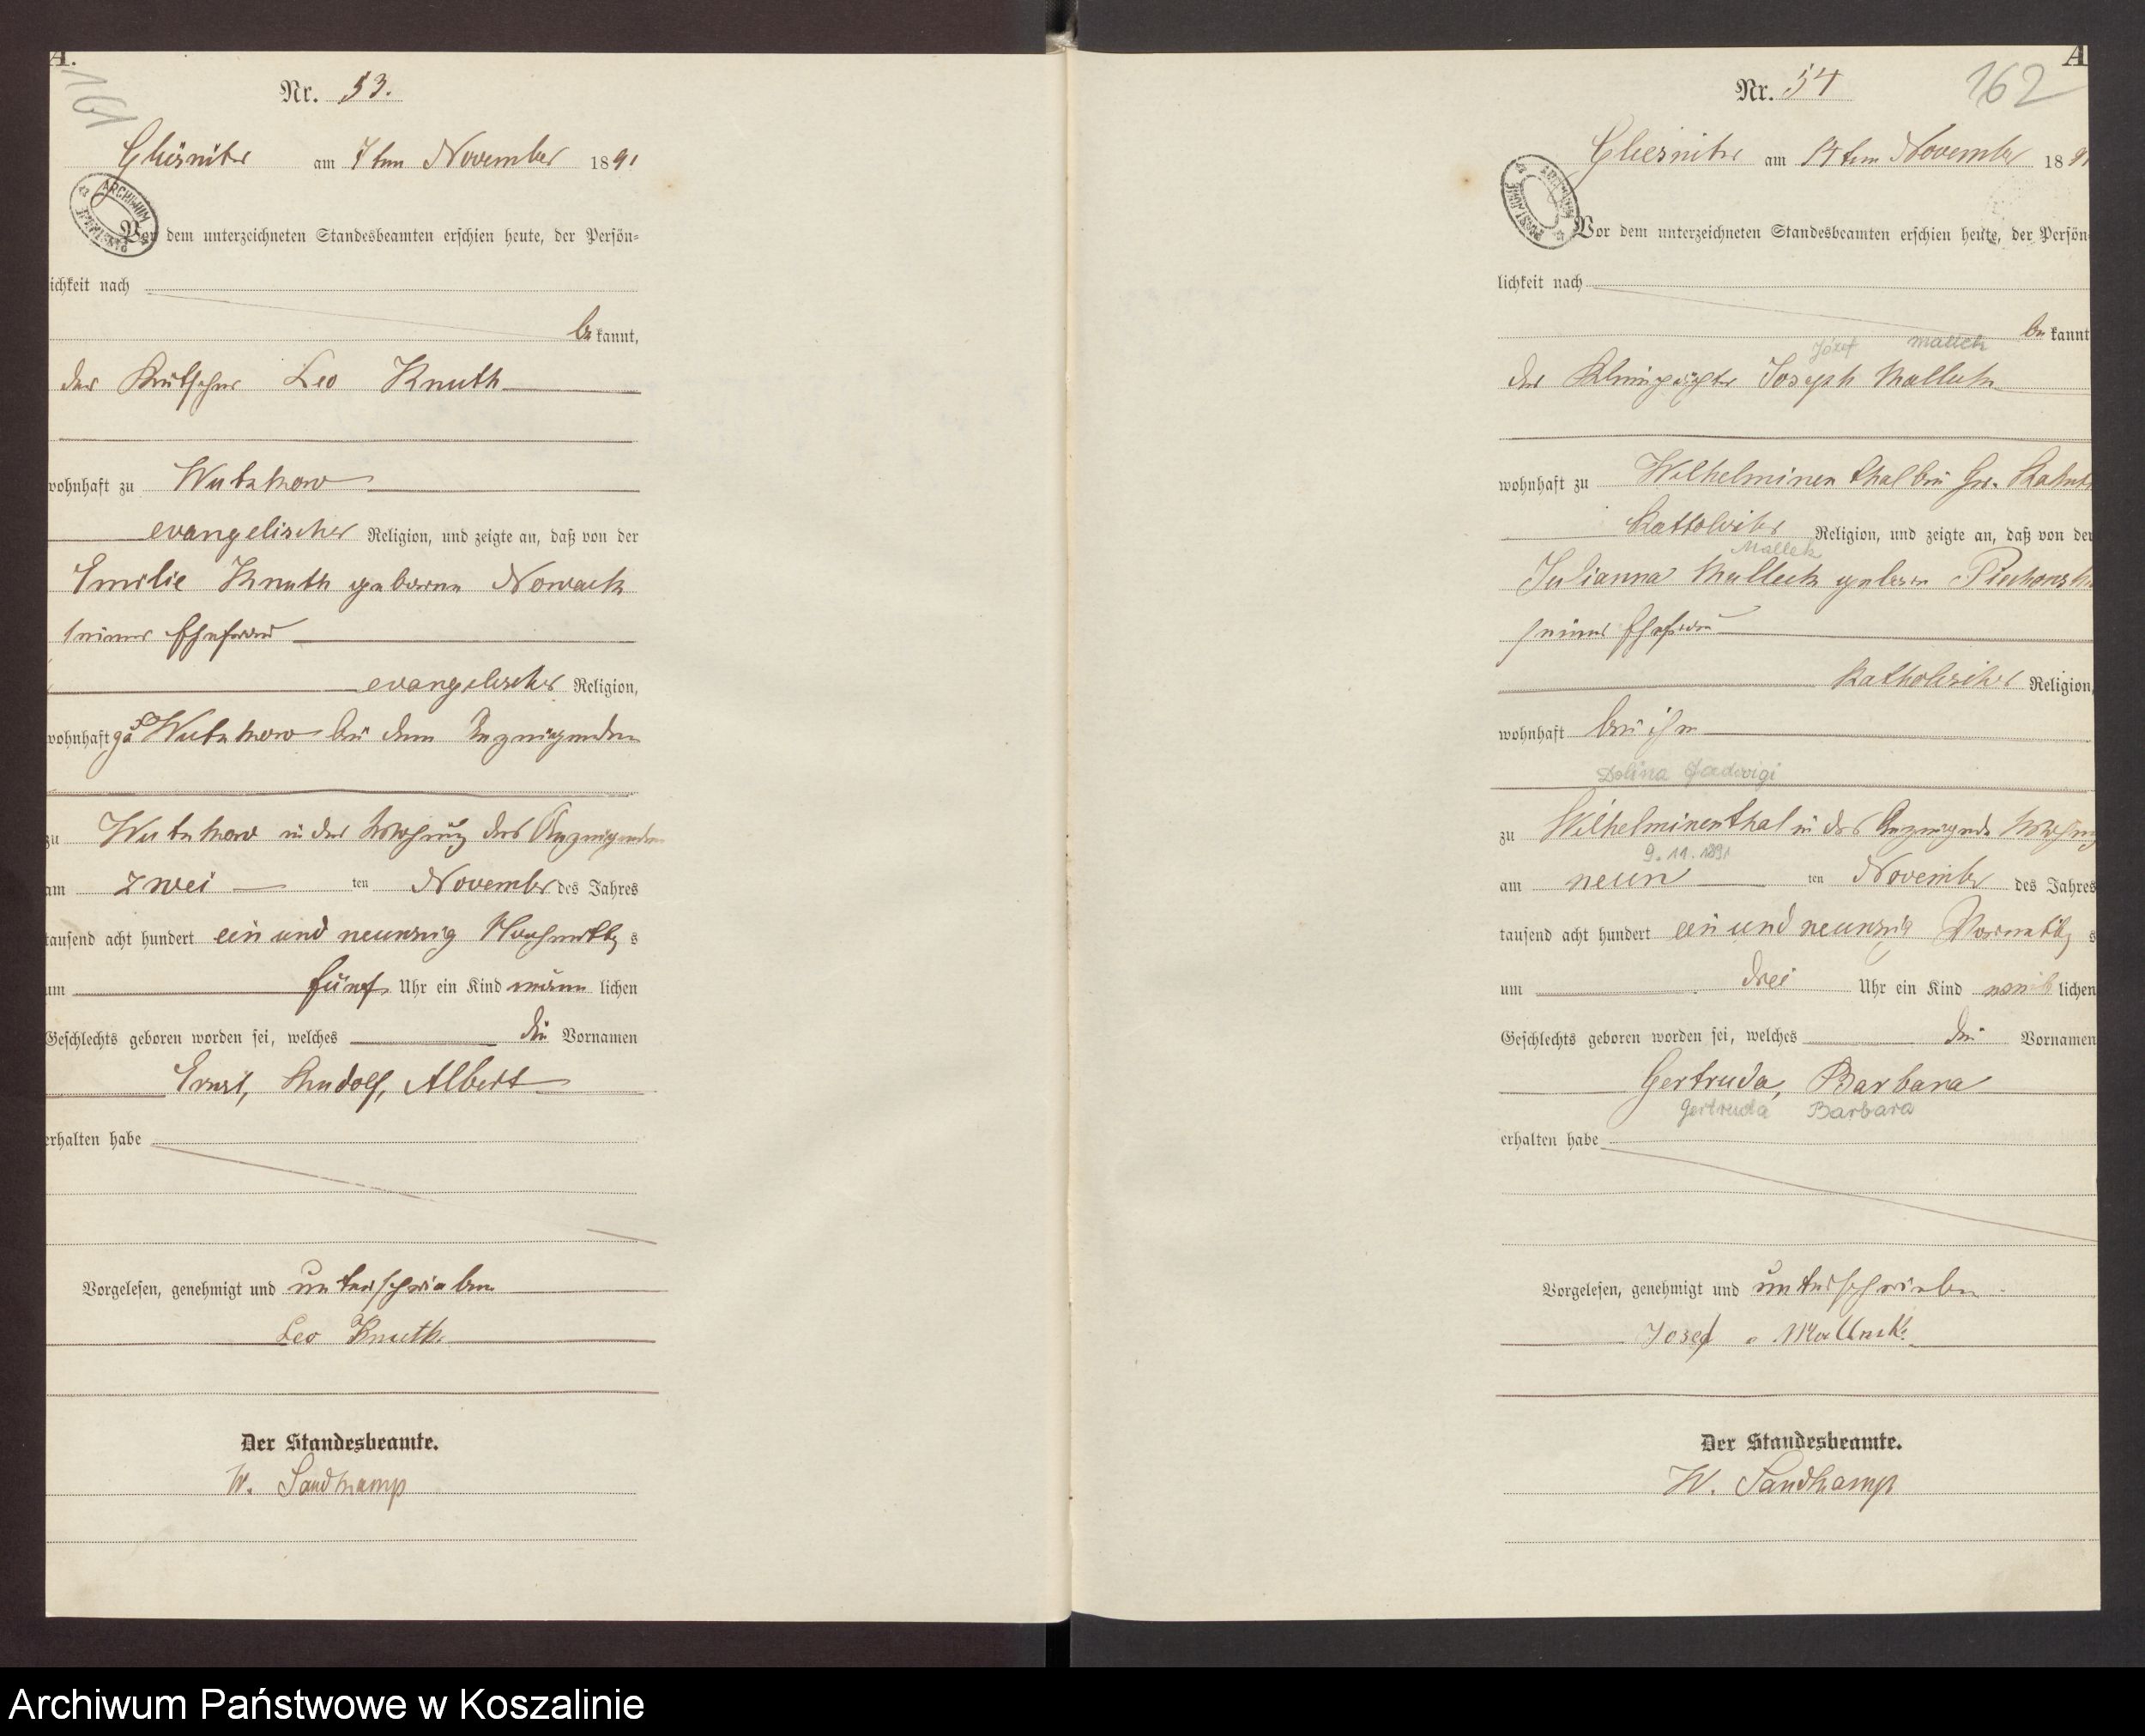 A.
161
Nr. 53.
Gliesnitz am 7ten November 1891
ARCHIWUM
Vor dem unterzeichneten Standesbeamten erschien heute, der Persön=
lichkeit nach
bekannt,
der Kutscher Leo Knuth
wohnhaft zu Wutzkow
evangelischer Religion, und zeigte an, daß von der
Emilie Knuth geborne Nowack
seiner Ehefrau
evangelischer Religion,
wohnhaft zu Wutzkow bei dem Anzeigenden
zu Wutzkow in der Wohnung des Anzeigenden
am zwei ten November des Jahres
tausend acht hundert ein und neunzig Nachmittags
um fünf Uhr ein Kind männlichen
Geschlechts geboren worden sei, welches die Vornamen
Ernst, Rudolf, Albert
erhalten habe
Vorgelesen, genehmigt und unterschrieben
Leo Knuth
Der Standesbeamte.
W. Sandkamp
A
162
Nr. 54
Gliesnitz am ten November 189
ARCHIWUM
Vor dem unterzeichneten Standesbeamten erschien heute, der Persön
lichkeit nach
bekannt
Józef Mallek
der Joseph Malleck
wohnhaft zu Wilhelminenthal bei Gr.
Religion, und zeigte an, daß von der
Mallek
Julianna Malleck geboren
seiner Ehefrau
katholischer Religion,
wohnhaft bei ihm
Dolina Jadwigi
zu Wilhelminenthal in des Anzeigende Wohnung
9.11.1891
am neun ten November des Jahres
tausend acht hundert ein und neunzig Vormittags
um drei Uhr ein Kind weiblichen
Geschlechts geboren worden sei, welches die Vornamen
Gertruda, Barbara
Gertruda Barbara
erhalten habe
Vorgelesen, genehmigt und unterschrieben
Josef Malleck
Der Standesbeamte.
W. Sandkamp
Archiwum Państwowe w Koszalinie